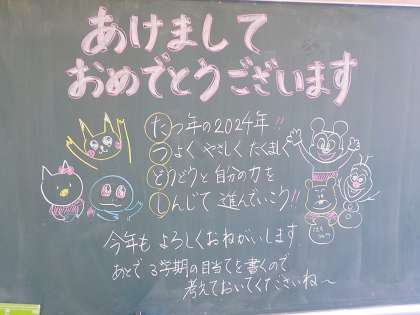 あけまして
おめでとうございます
たつ年の2024年!!
つよく やさしく たくましく
どうどうと 自分の力を
しんじて 進んでいこう!!
今年も よろしくおねがいします
あとで 3学期の目当てを書くので
考えておいてくださいね〜